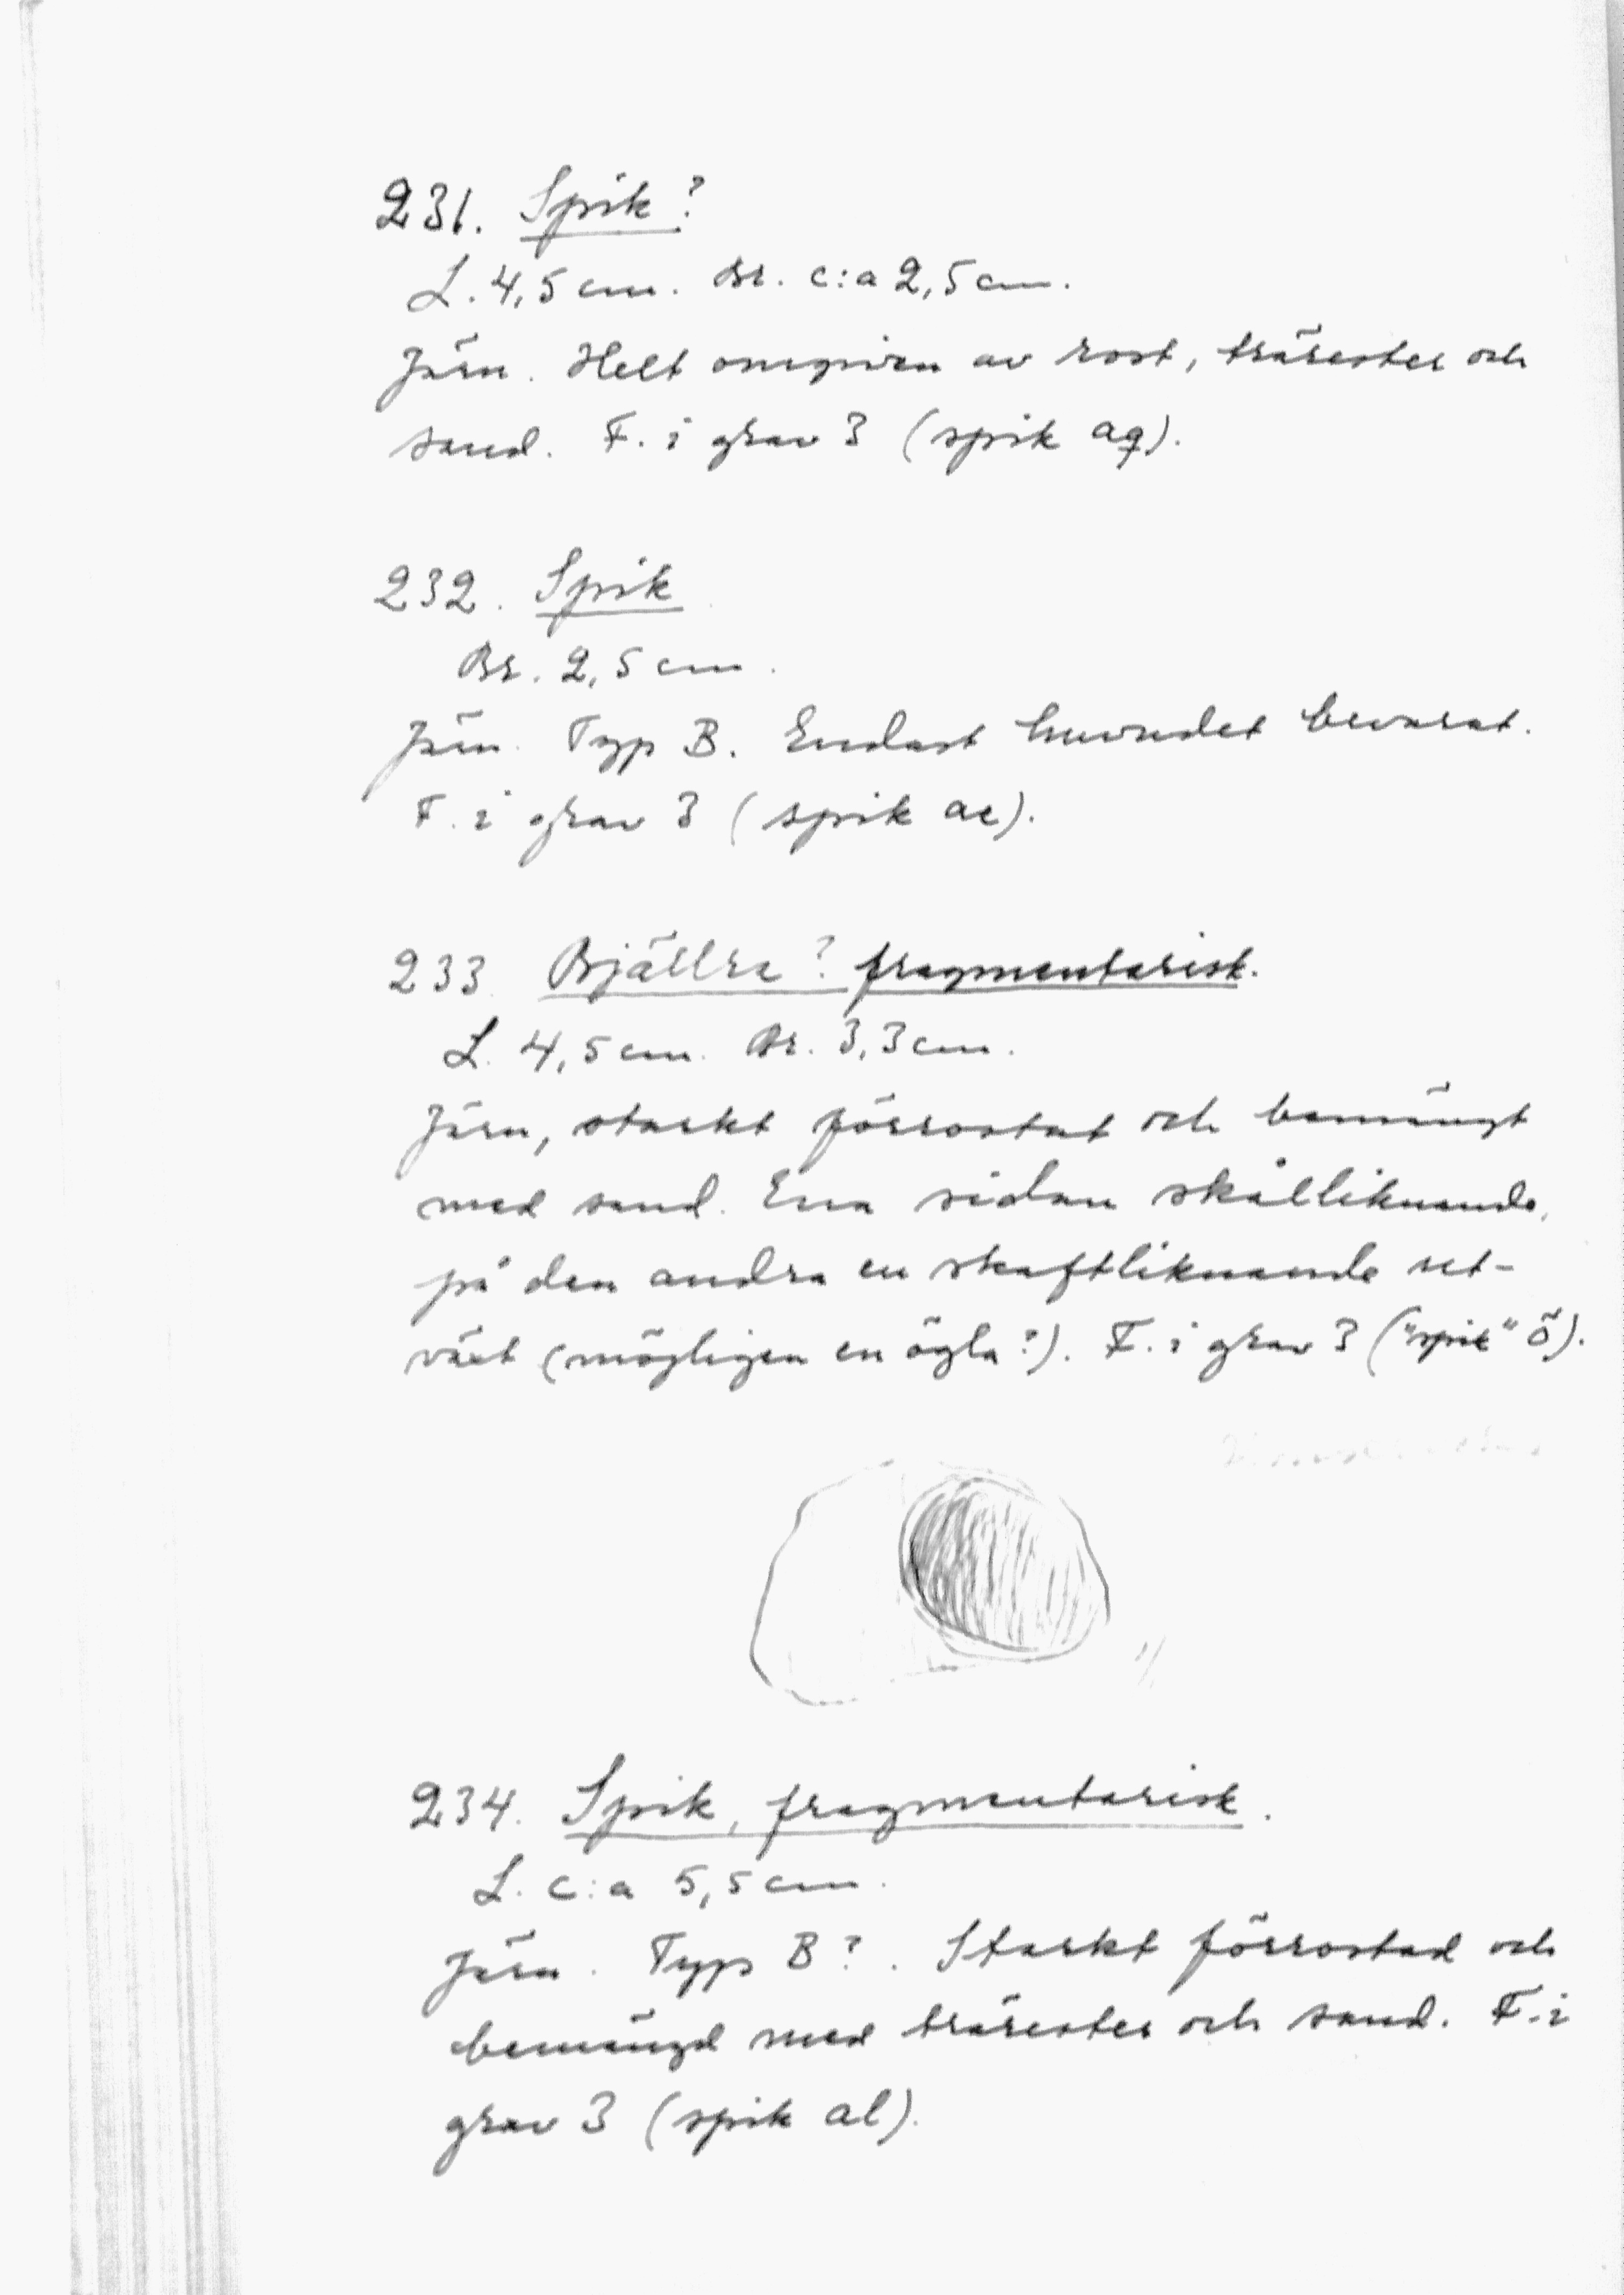 231. Spik?
L. 4,5 cm. Br. c:a 2,5 cm.
Järn. Helt omgiven av rost, trärester och
sand. F. i grav 3 (spik aq).
232. Spik
Br. 2,5 cm.
Järn. Typ B. Endast huvudet bevarat.
F. i grav 3 (spik ae).
233 Bjällra? fragmentarisk.
L. 4,5 cm. Br. 3,3 cm.
Järn, starkt förrostat och bemängt
med sand. Ena sidan skålliknande,
på den andra en skaftliknande ut-
växt (möjligen en ögla?). F. i grav 3 ("spik" ö).
1/1
234. Spik, fragmentarisk.
L. c:a 5,5 cm.
Järn. Typ B?. Starkt förrostad och
bemängd med trärester och sand. F. i
grav 3 (spik al).